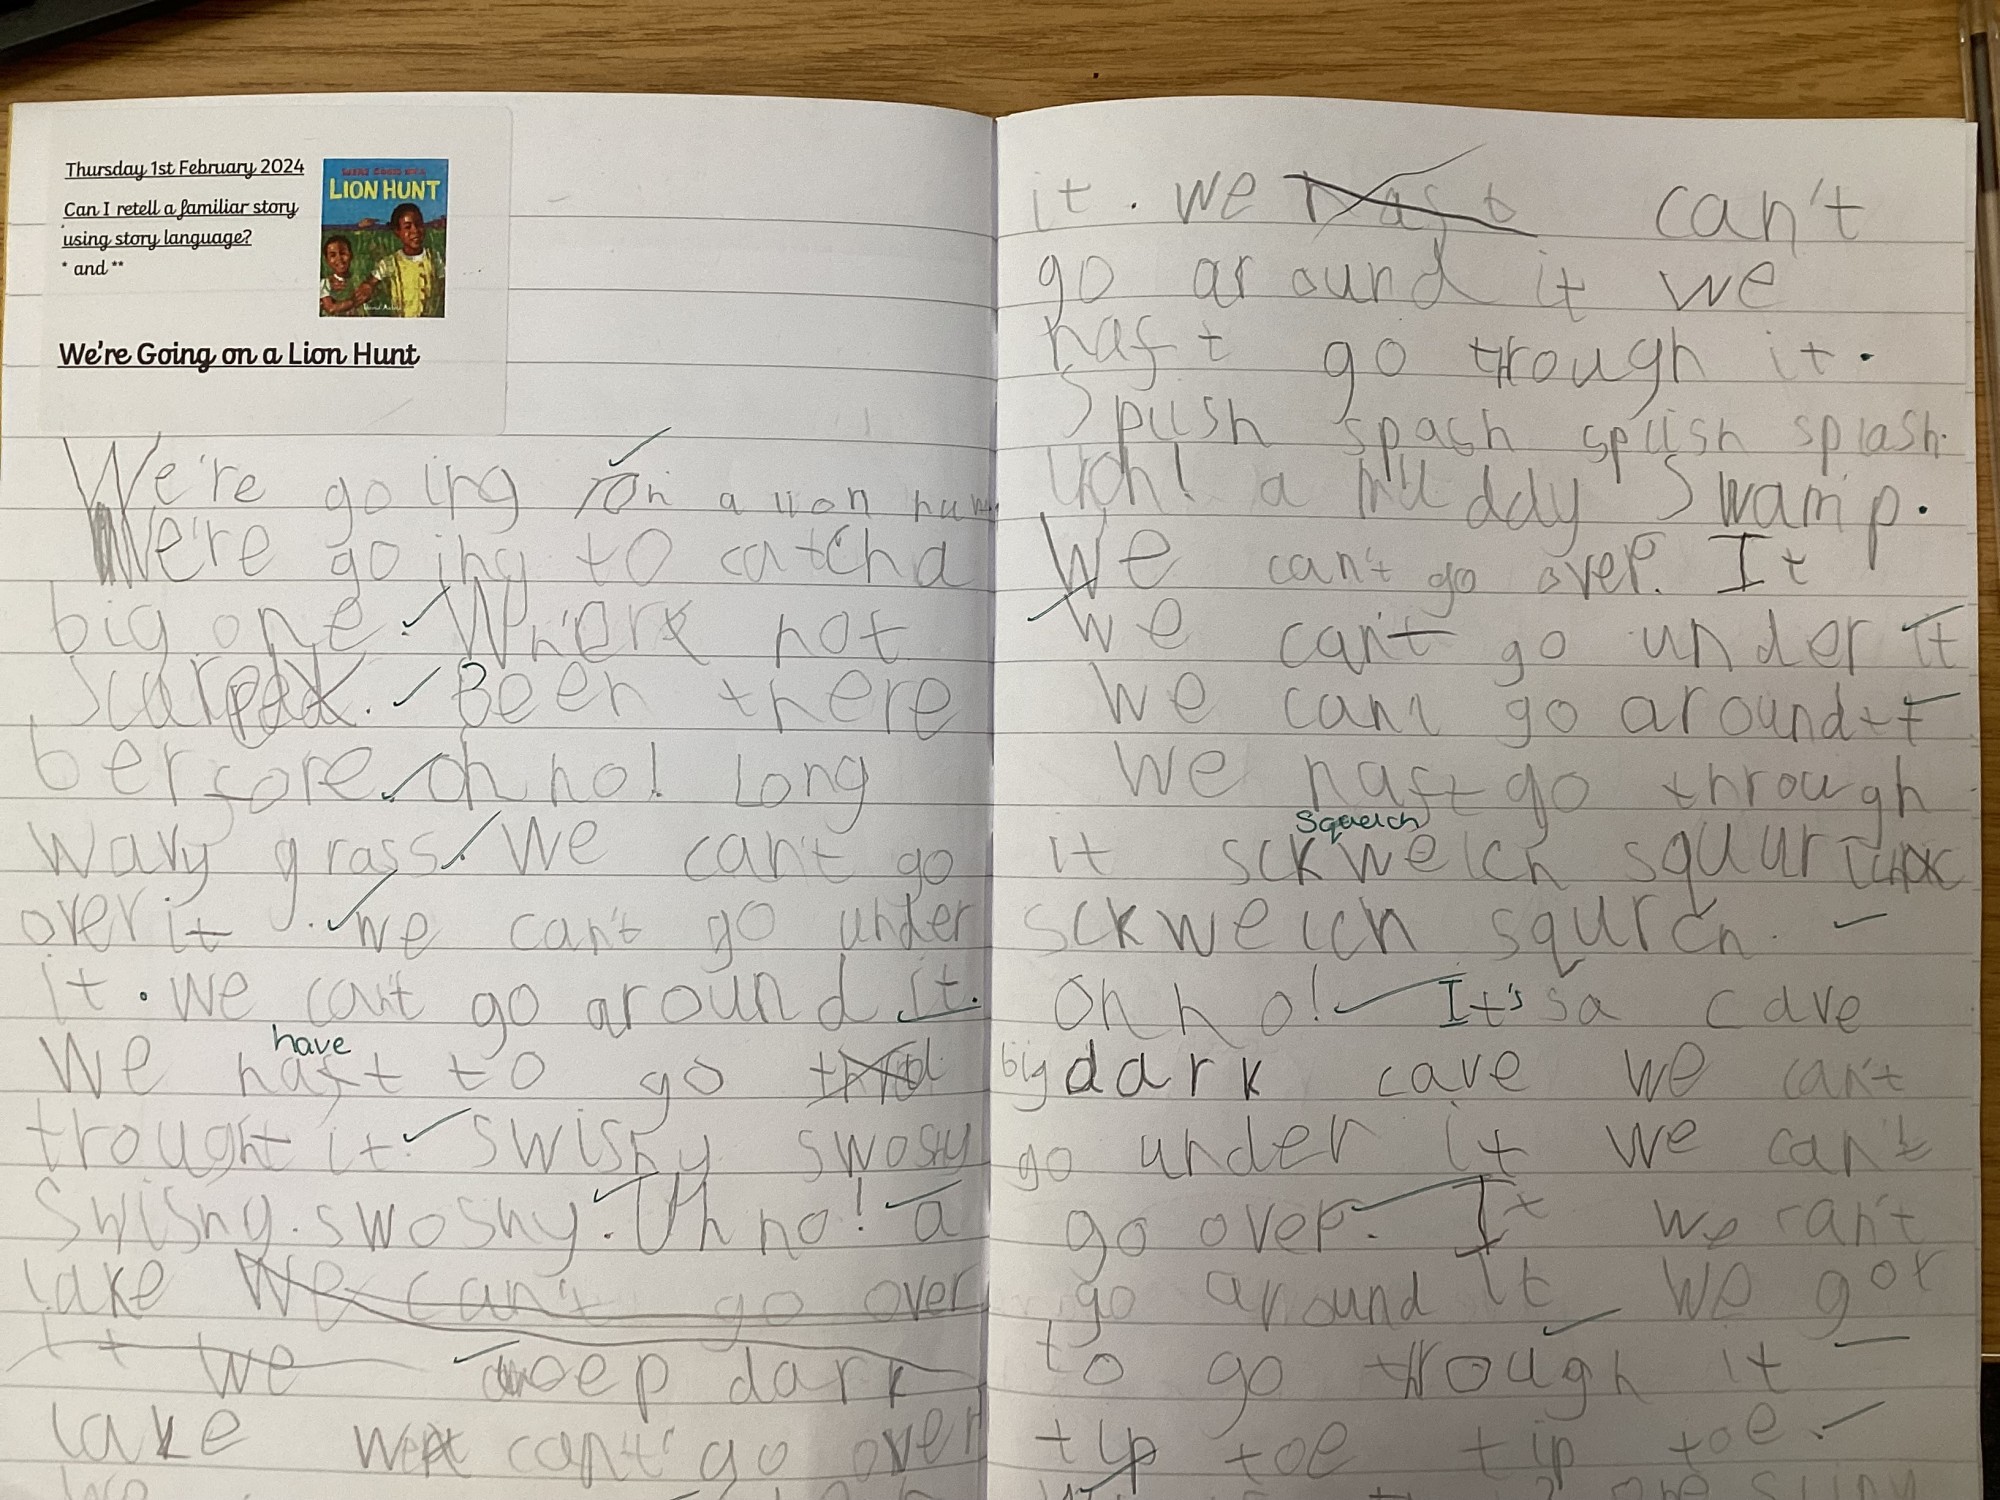 Thursday 1st February 2024
Can I retell a familiar story
using story language?
* and **
WE'RE GOING ON A
LION HUNT
We're Going on a Lion Hunt
We're going on a lion hun
We're going to catch a
big one. Wherk not
scared. Been there
berfore. Oh no! Long
wavy grass. We can't go
over it. we can't go under
it. we can't go around it.
have
We haft to go
trought it. swishy swoshy
swishy. swoshy. Uh no! a
lake We can't go over
it we deep dark
lake we can't go over
it. we haft can't
go around it we
haft go trough it.
Splish spash splish splash.
Uoh! a muddy Swamp.
We can't go over. It
We can't go under it
We can't go around it
We haft go through
squelch
it sckwelch
sckwelch squrch.
Oh no! It's a cave
big dark cave we can't
go under it we can't
go over. It we can't
go around it we got
to go trough it
tip toe tip toe.